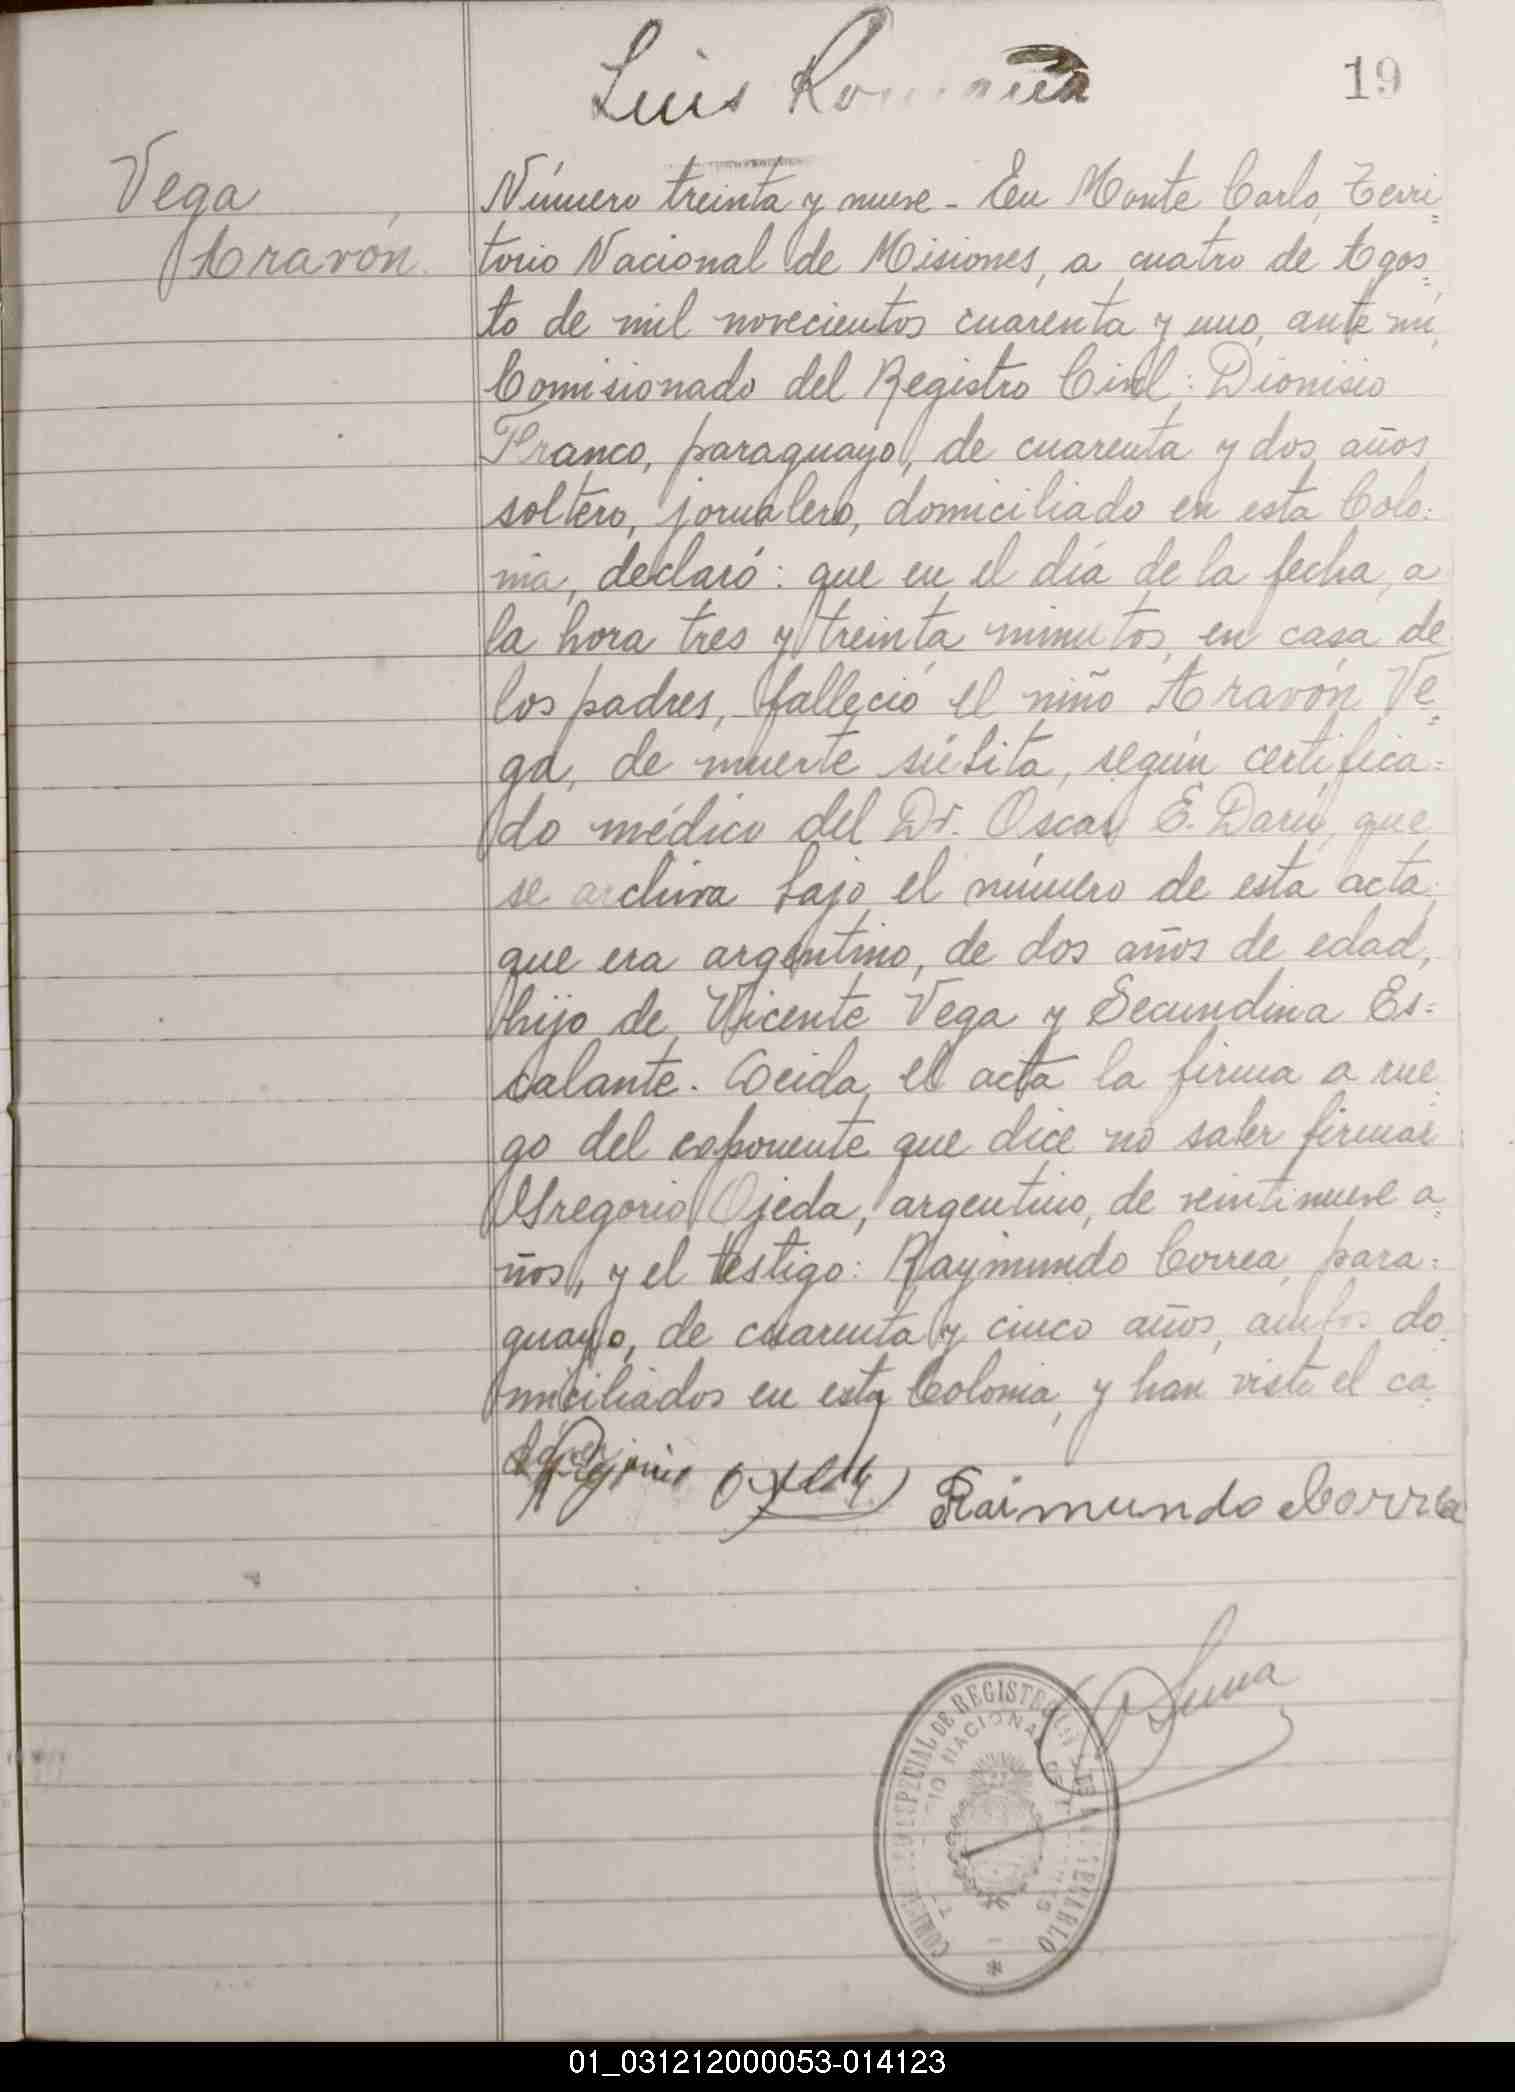 Luis Romañá
19
Vega
Aravón.
Número treinta y nueve - En Monte Carlo, Terri=
torio Nacional de Misiones, a cuatro de Agos=
to de mil novecientos cuarenta y uno, ante mi,
Comisionado del Registro Civil: Dionisio
Franco, paraguayo, de cuarenta y dos años
soltero, jornalero, domiciliado en esta Colo=
nia, declaró: que en el día de la fecha, a
la hora tres y treinta minutos, en casa de
los padres, falleció el niño Aravón Ve=
ga, de muerte súbita, según certifica=
do médico del Dr. Oscar E. Darú, que
se archiva bajo el número de esta acta;
que era argentino, de dos años de edad,
hijo de Vicente Vega y Secundina Es=
calante. Leida el acta la firma a rue
go del exponente que dice no saber firmar
Gregorio Ojeda, argentino, de veintinueve a=
ños, y el testigo: Raymundo Correa, para=
guayo, de cuarenta y cinco años, ambos do
miciliados en esta Colonia, y han visto el ca
dáver
Raimundo Correa
REGISTRO
NACIONAL DE
01_031212000053-014123